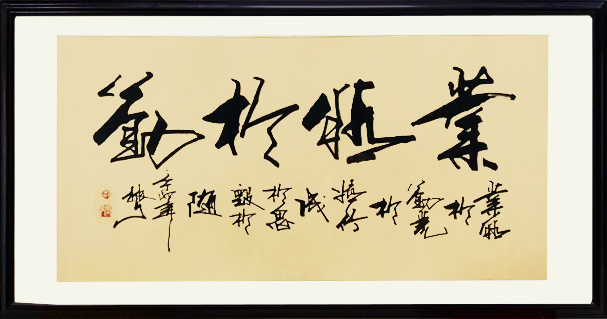 業精於勤
業精
於
勤荒
於
嬉行
成
於思
毀於
随